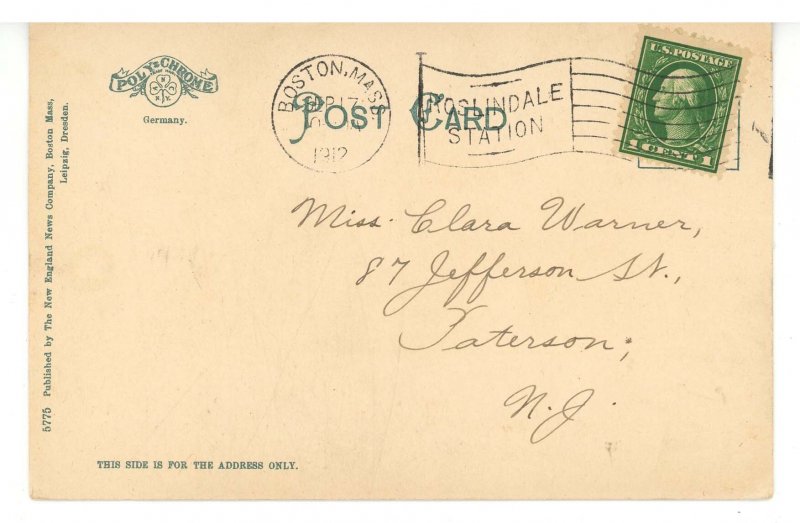 POLY-CHROME
Germany.
BOSTON, MASS
1912
ROSLINDALE
STATION
POST CARD
U.S. POSTAGE
1 CENT 1
Miss. Clara Warner,
87 Jefferson St.,
Paterson,
N.J.
5775 Published by The New England News Company, Boston Mass,
Leipzig, Dresden.
THIS SIDE IS FOR THE ADDRESS ONLY.